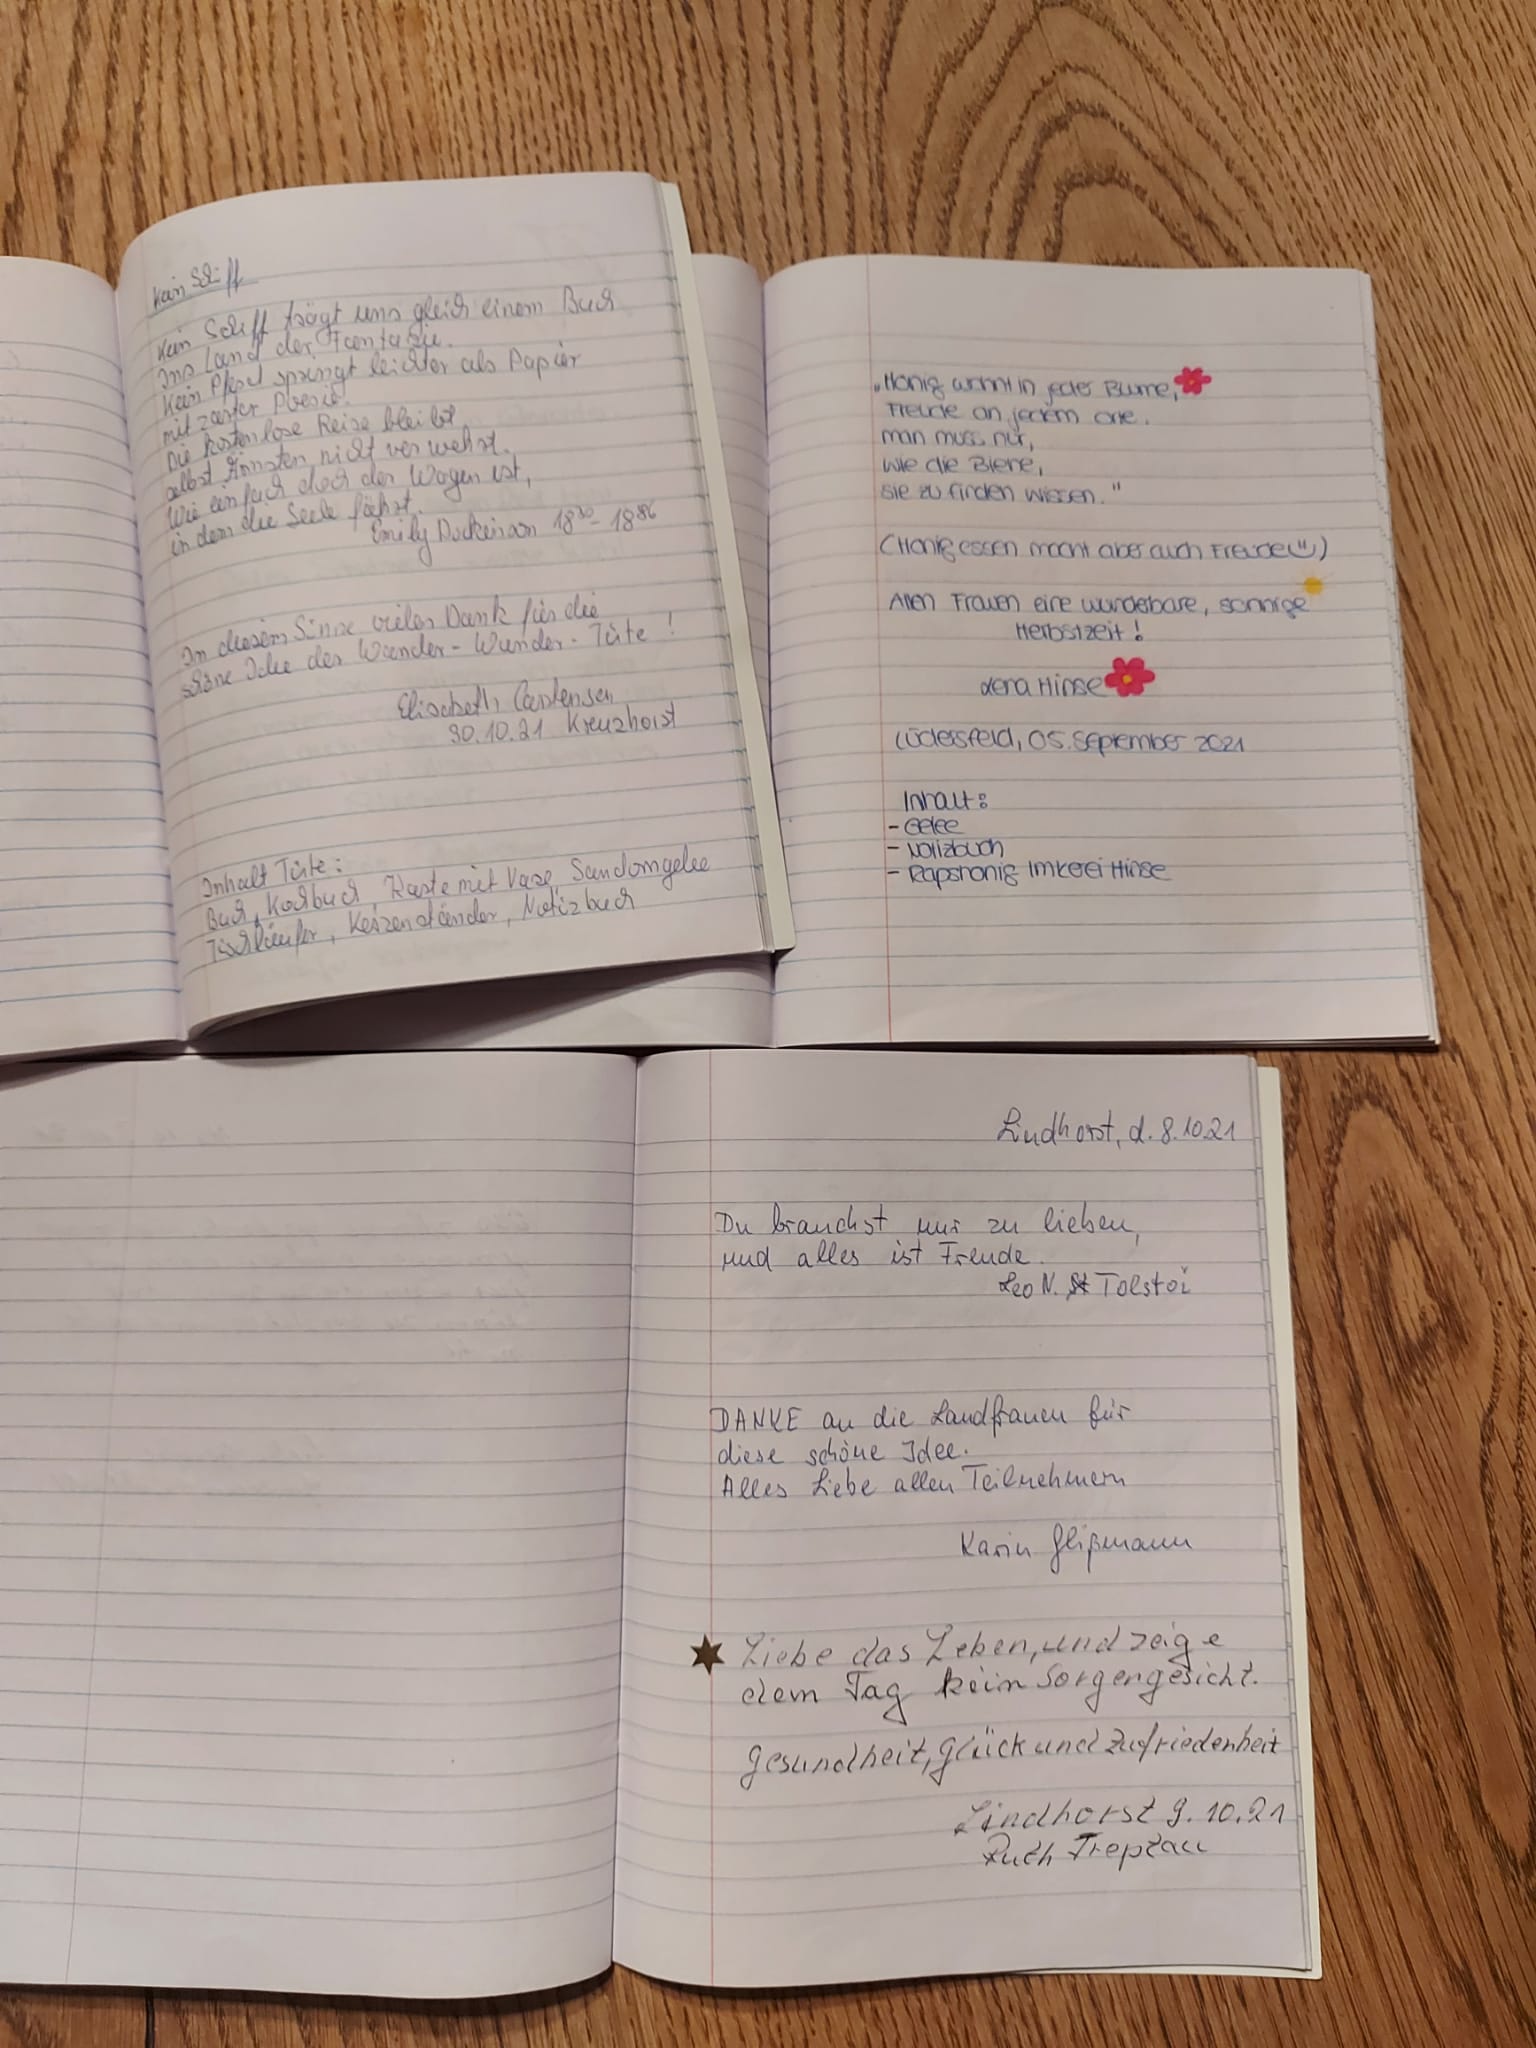 Kein Schiff
Kein Schiff trägt uns gleich einem Buch
Ins Land der Fantasie.
Kein Pferd springt leichter als Papier
mit zarter Poesie.
Die kostenlose Reise bleibt
selbst Ärmsten nicht verwehrt.
Wie einfach doch der Wagen ist,
in dem die Seele fährt.
Emily Dickinson 1830-1886
In diesem Sinne vielen Dank für die
schöne Idee der Wander-Wunder-Tüte!
Elisabeth Carstensen
30.10.21 Kreuzhorst
Inhalt Tüte:
Buch, Kochbuch, Karte mit Vase, Sandorngelee
Tischläufer, Kerzenständer, Notizbuch
„Honig wohnt in jeder Blume,
Freude an jedem Orte.
man muss nur,
wie die Biene,
sie zu finden wissen."
(Honig essen macht aber auch Freude☺)
Allen Frauen eine wunderbare, sonnige
Herbstzeit!
Lena Hinse
Lüdersfeld, 05. September 2021
Inhalt:
- Gelee
- Notizbuch
- Rapshonig Imkerei Hinse
Lindhorst, d. 8.10.21
Du brauchst nur zu lieben,
und alles ist Freude.
Leo N. Tolstoi
DANKE an die Landfrauen für
diese schöne Idee.
Alles Liebe allen Teilnehmern
Karin Glißmann
Liebe das Leben, und zeige
dem Tag kein Sorgengesicht.
Gesundheit, Glück und Zufriedenheit
Lindhorst 9.10.21
Ruth Treptau